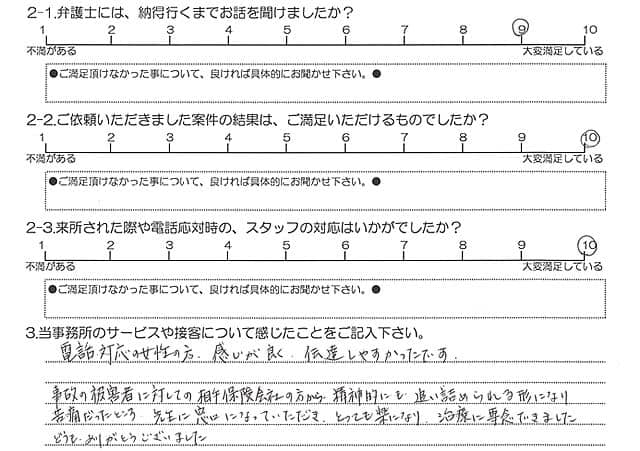 2-1.弁護士には、納得行くまでお話を聞けましたか？
1 2 3 4 5 6 7 8 9 10
不満がある 大変満足している
●ご満足頂けなかった事について、良ければ具体的にお聞かせ下さい。●
2-2.ご依頼いただきました案件の結果は、ご満足いただけるものでしたか？
1 2 3 4 5 6 7 8 9 10
不満がある 大変満足している
●ご満足頂けなかった事について、良ければ具体的にお聞かせ下さい。●
2-3.来所された際や電話応対時の、スタッフの対応はいかがでしたか？
1 2 3 4 5 6 7 8 9 10
不満がある 大変満足している
●ご満足頂けなかった事について、良ければ具体的にお聞かせ下さい。●
3.当事務所のサービスや接客について感じたことをご記入下さい。
電話対応の女性の方、感じが良く、伝達しやすかったです。
事故の被害者に対しての相手保険会社の方から、精神的にも追い詰められる形になり
苦痛だったところ、先生に窓口になっていただき、とっても楽になり、治療に専念できました
どうも、ありがとうございました